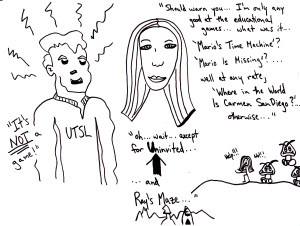 "Should warn you... I'm only any
good at the educational
games... what was it...
'Mario's Time Machine'?
'Mario is Missing'? ...
well at any rate,
'Where in the World
Is Carmen SanDiego?'...
otherwise..."
"It's
NOT a
game!"
UTSL
"oh... wait... except
for Uninvited...
... and
Ray's Maze..."